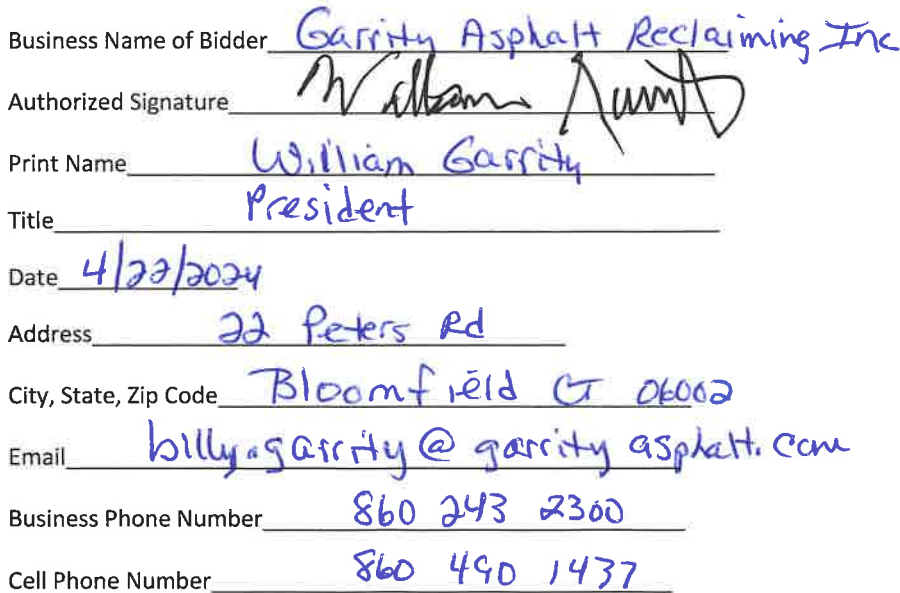 Business Name of Bidder Garrity Asphalt Reclaiming Inc
Authorized Signature William
Print Name William Garrity
Title President
Date 4/22/2024
Address 22 Peters Rd
City, State, Zip Code Bloomfield CT 06002
Email billy.garrity@garrityasphalt.com
Business Phone Number 860 243 2300
Cell Phone Number 860 490 1437